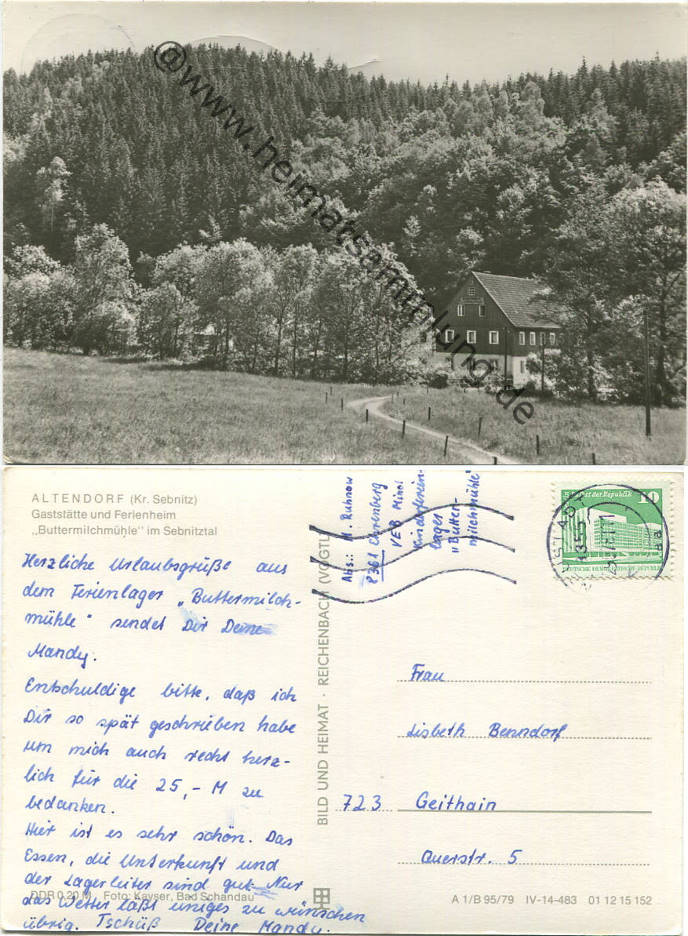 @www.heimatsammlung.de
ALTENDORF (Kr. Sebnitz)
Gaststätte und Ferienheim
„Buttermilchmühle" im Sebnitztal
Herzliche Urlaubsgrüße aus
dem Ferienlager „Buttermilch-
mühle" sendet Dir Deine
Mandy.
Entschuldige bitte, daß ich
Dir so spät geschrieben habe
um mich auch recht herz-
lich für die 25,- M zu
bedanken.
Hier ist es sehr schön. Das
Essen, die Unterkunft und
der Lagerleiter sind gut. Nur
das Wetter läßt einiges zu wünschen
übrig. Tschüß Deine Mandy.
DDR 0,20 M Foto: Kayser, Bad Schandau
BILD UND HEIMAT · REICHENBACH (VOGTL
Abs.: M. Ruhnow
8361 Ehrenberg
VEB Minol
Kinderferien-
lager
„Butter-
milchmühle"
Palast der Republik 10
DEUTSCHE DEMOKRATISCHE REPUBLIK
Frau
Lisbeth Benndorf
723 Geithain
Querstr. 5
A 1/B 95/79 IV-14-483 01 12 15 152